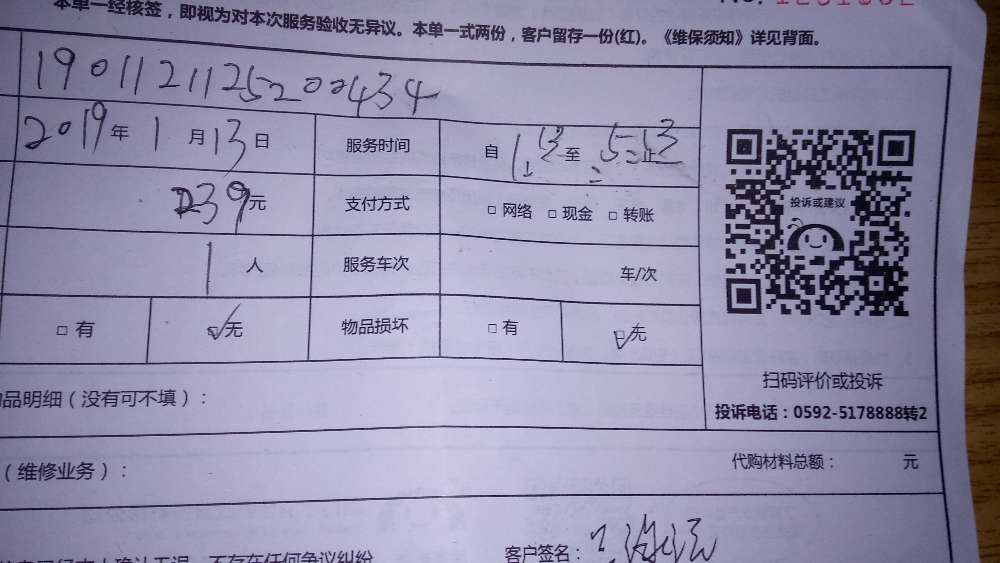 本单一经核签，即视为对本次服务验收无异议。本单一式两份，客户留存一份(红)。《维保须知》详见背面。
1901121125200434
2019年1月13日 服务时间 自 至 止
239元 支付方式 □网络 □现金 □转账
1人 服务车次 车/次
□有 ☑无 物品损坏 □有 ☑无
投诉或建议
扫码评价或投诉
投诉电话：0592-5178888转2
品明细（没有可不填）：
（维修业务）： 代购材料总额： 元
不存在任何争议纠纷
客户签名：